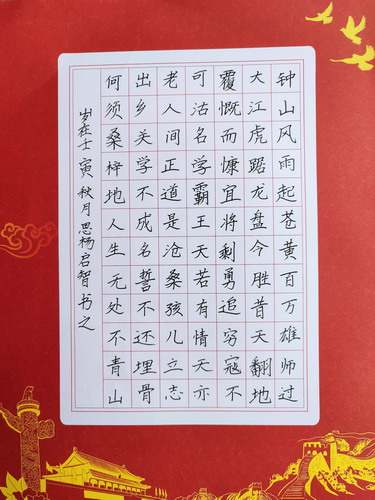 钟山风雨起苍黄百万雄师过
大江虎踞龙盘今胜昔天翻地
覆慨而慷宜将剩勇追穷寇不
可沽名学霸王天若有情天亦
老人间正道是沧桑孩儿立志
出乡关学不成名誓不还埋骨
何须桑梓地人生无处不青山
岁在壬寅秋月思杨启智书之